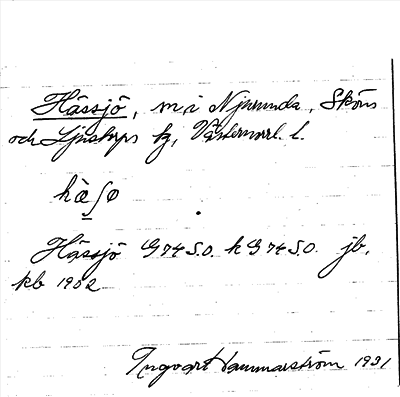 Hässjö, m, i Njurunda, Sköns
och Ljustorps tg, Västernorrl. l.
hæ̀ʃø
Hässjö G74 S.O. k G74 S.O. jb,
kb 1902
Ingvart Hammarström 1931